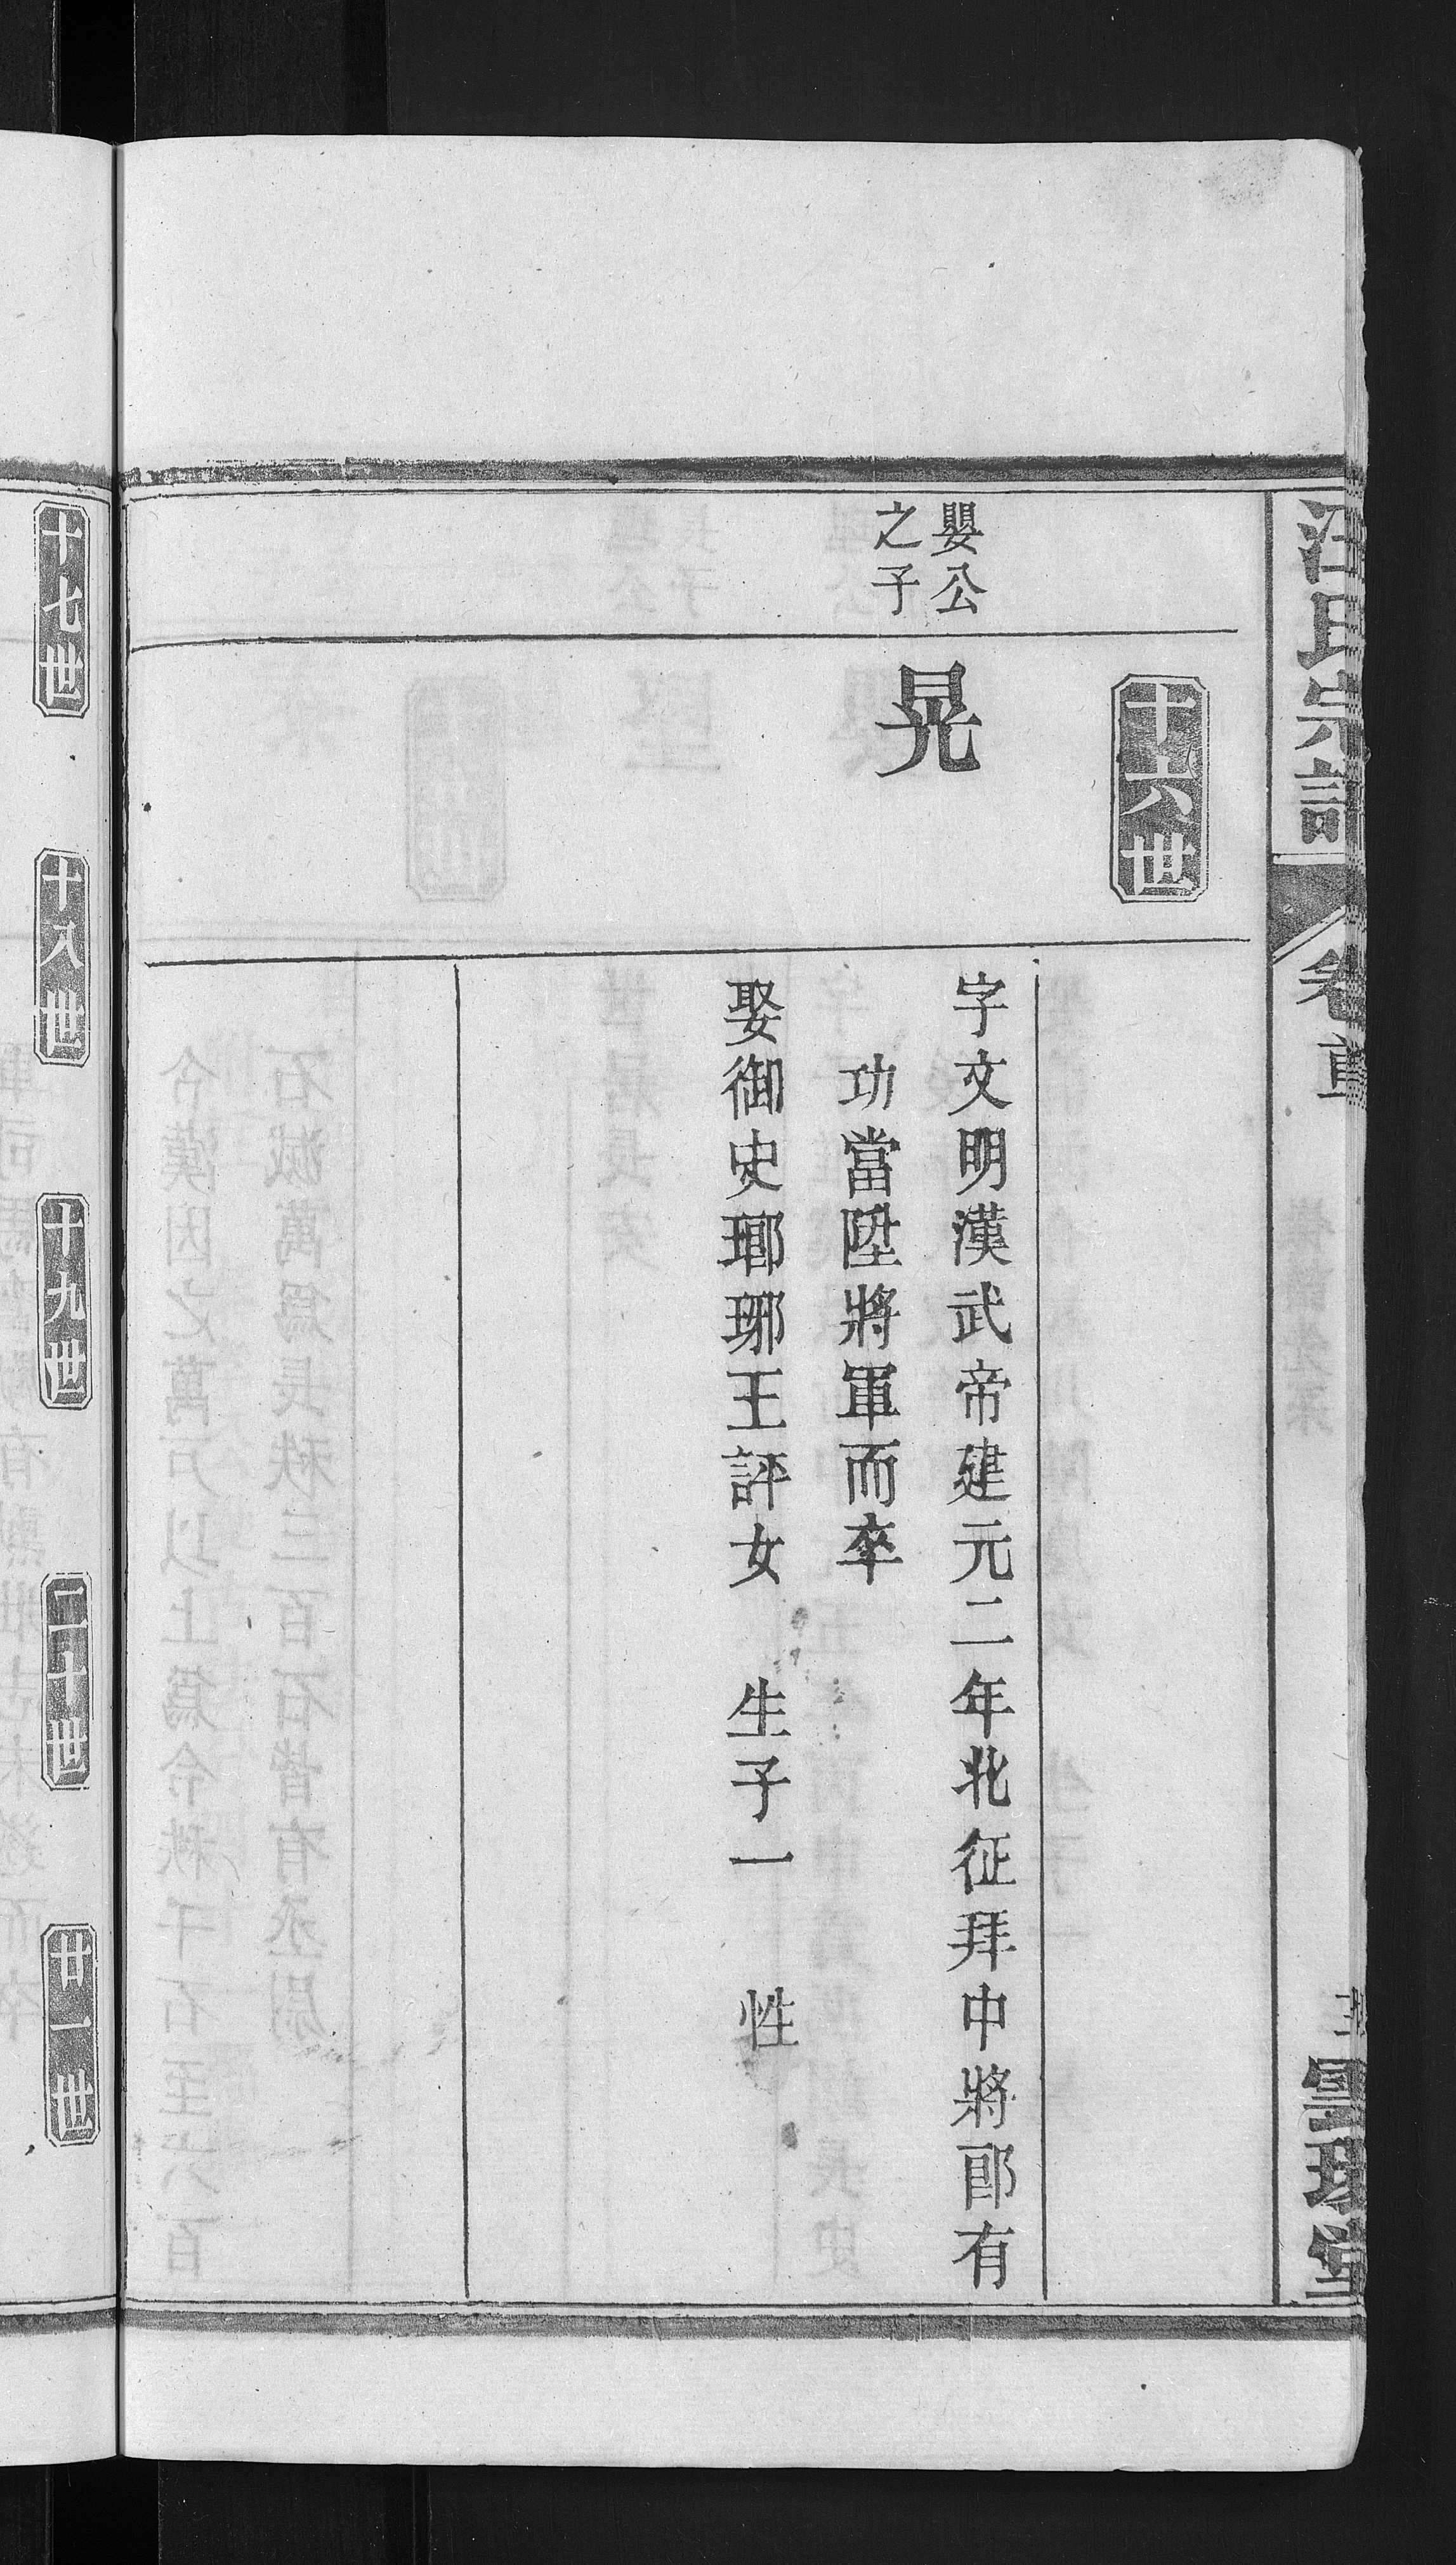 汪氏宗譜
卷首
十六世
嬰公
之子
晃
字文明漢武帝建元二年北征拜中將郎有
功當陞將軍而卒
娶御史瑯琊王評女 生子一 性
十七世
十八世
十九世
二十世
廿一世